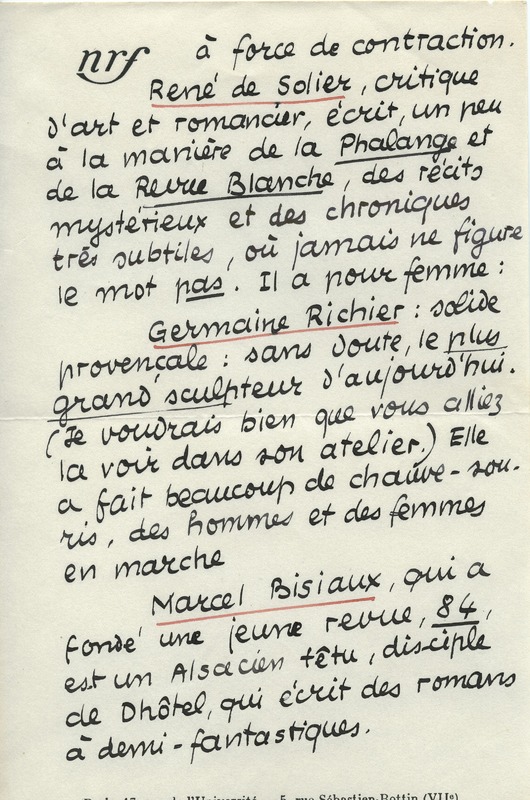 nrf
à force de contraction.
René de Solier, critique
d'art et romancier, écrit, un peu
à la manière de la Phalange et
de la Revue Blanche, des récits
mystérieux et des chroniques
très subtiles, où jamais ne figure
le mot pas. Il a pour femme :
Germaine Richier : solide
provençale : sans doute, le plus
grand sculpteur d'aujourd'hui.
(Je voudrais bien que vous alliez
la voir dans son atelier.) Elle
a fait beaucoup de chauve-sou-
ris, des hommes et des femmes
en marche
Marcel Bisiaux, qui a
fondé une jeune revue, 84,
est un Alsacien têtu, disciple
de Dhôtel, qui écrit des romans
à demi-fantastiques.
5, rue Sébastien-Bottin (VIIe)